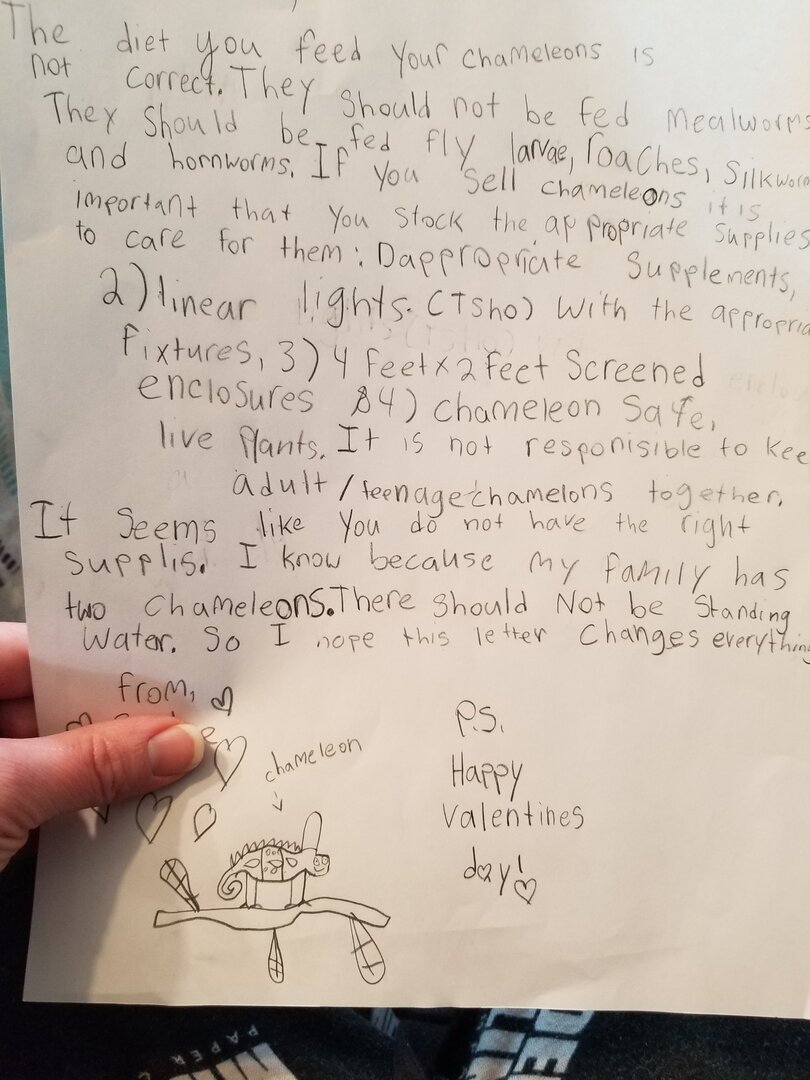 The diet you feed your chameleons is
not correct. They should not be fed mealworms
They should be fed fly larvae, roaches, silkworm
and hornworms. If you sell chameleons it is
important that you stock the appropriate supplies
to care for them: 1) appropriate supplements,
2) linear lights. (T5ho) with the appropria
fixtures, 3) 4 feet x 2 feet screened
enclosures & 4) chameleon safe,
live plants. It is not responisible to kee
adult/teenage chamelons together.
It seems like you do not have the right
supplis. I know because my family has
two chameleons. There should Not be standing
water. So I hope this letter changes everything
from,
chameleon
P.S.
Happy
Valentines
day!
PAPER